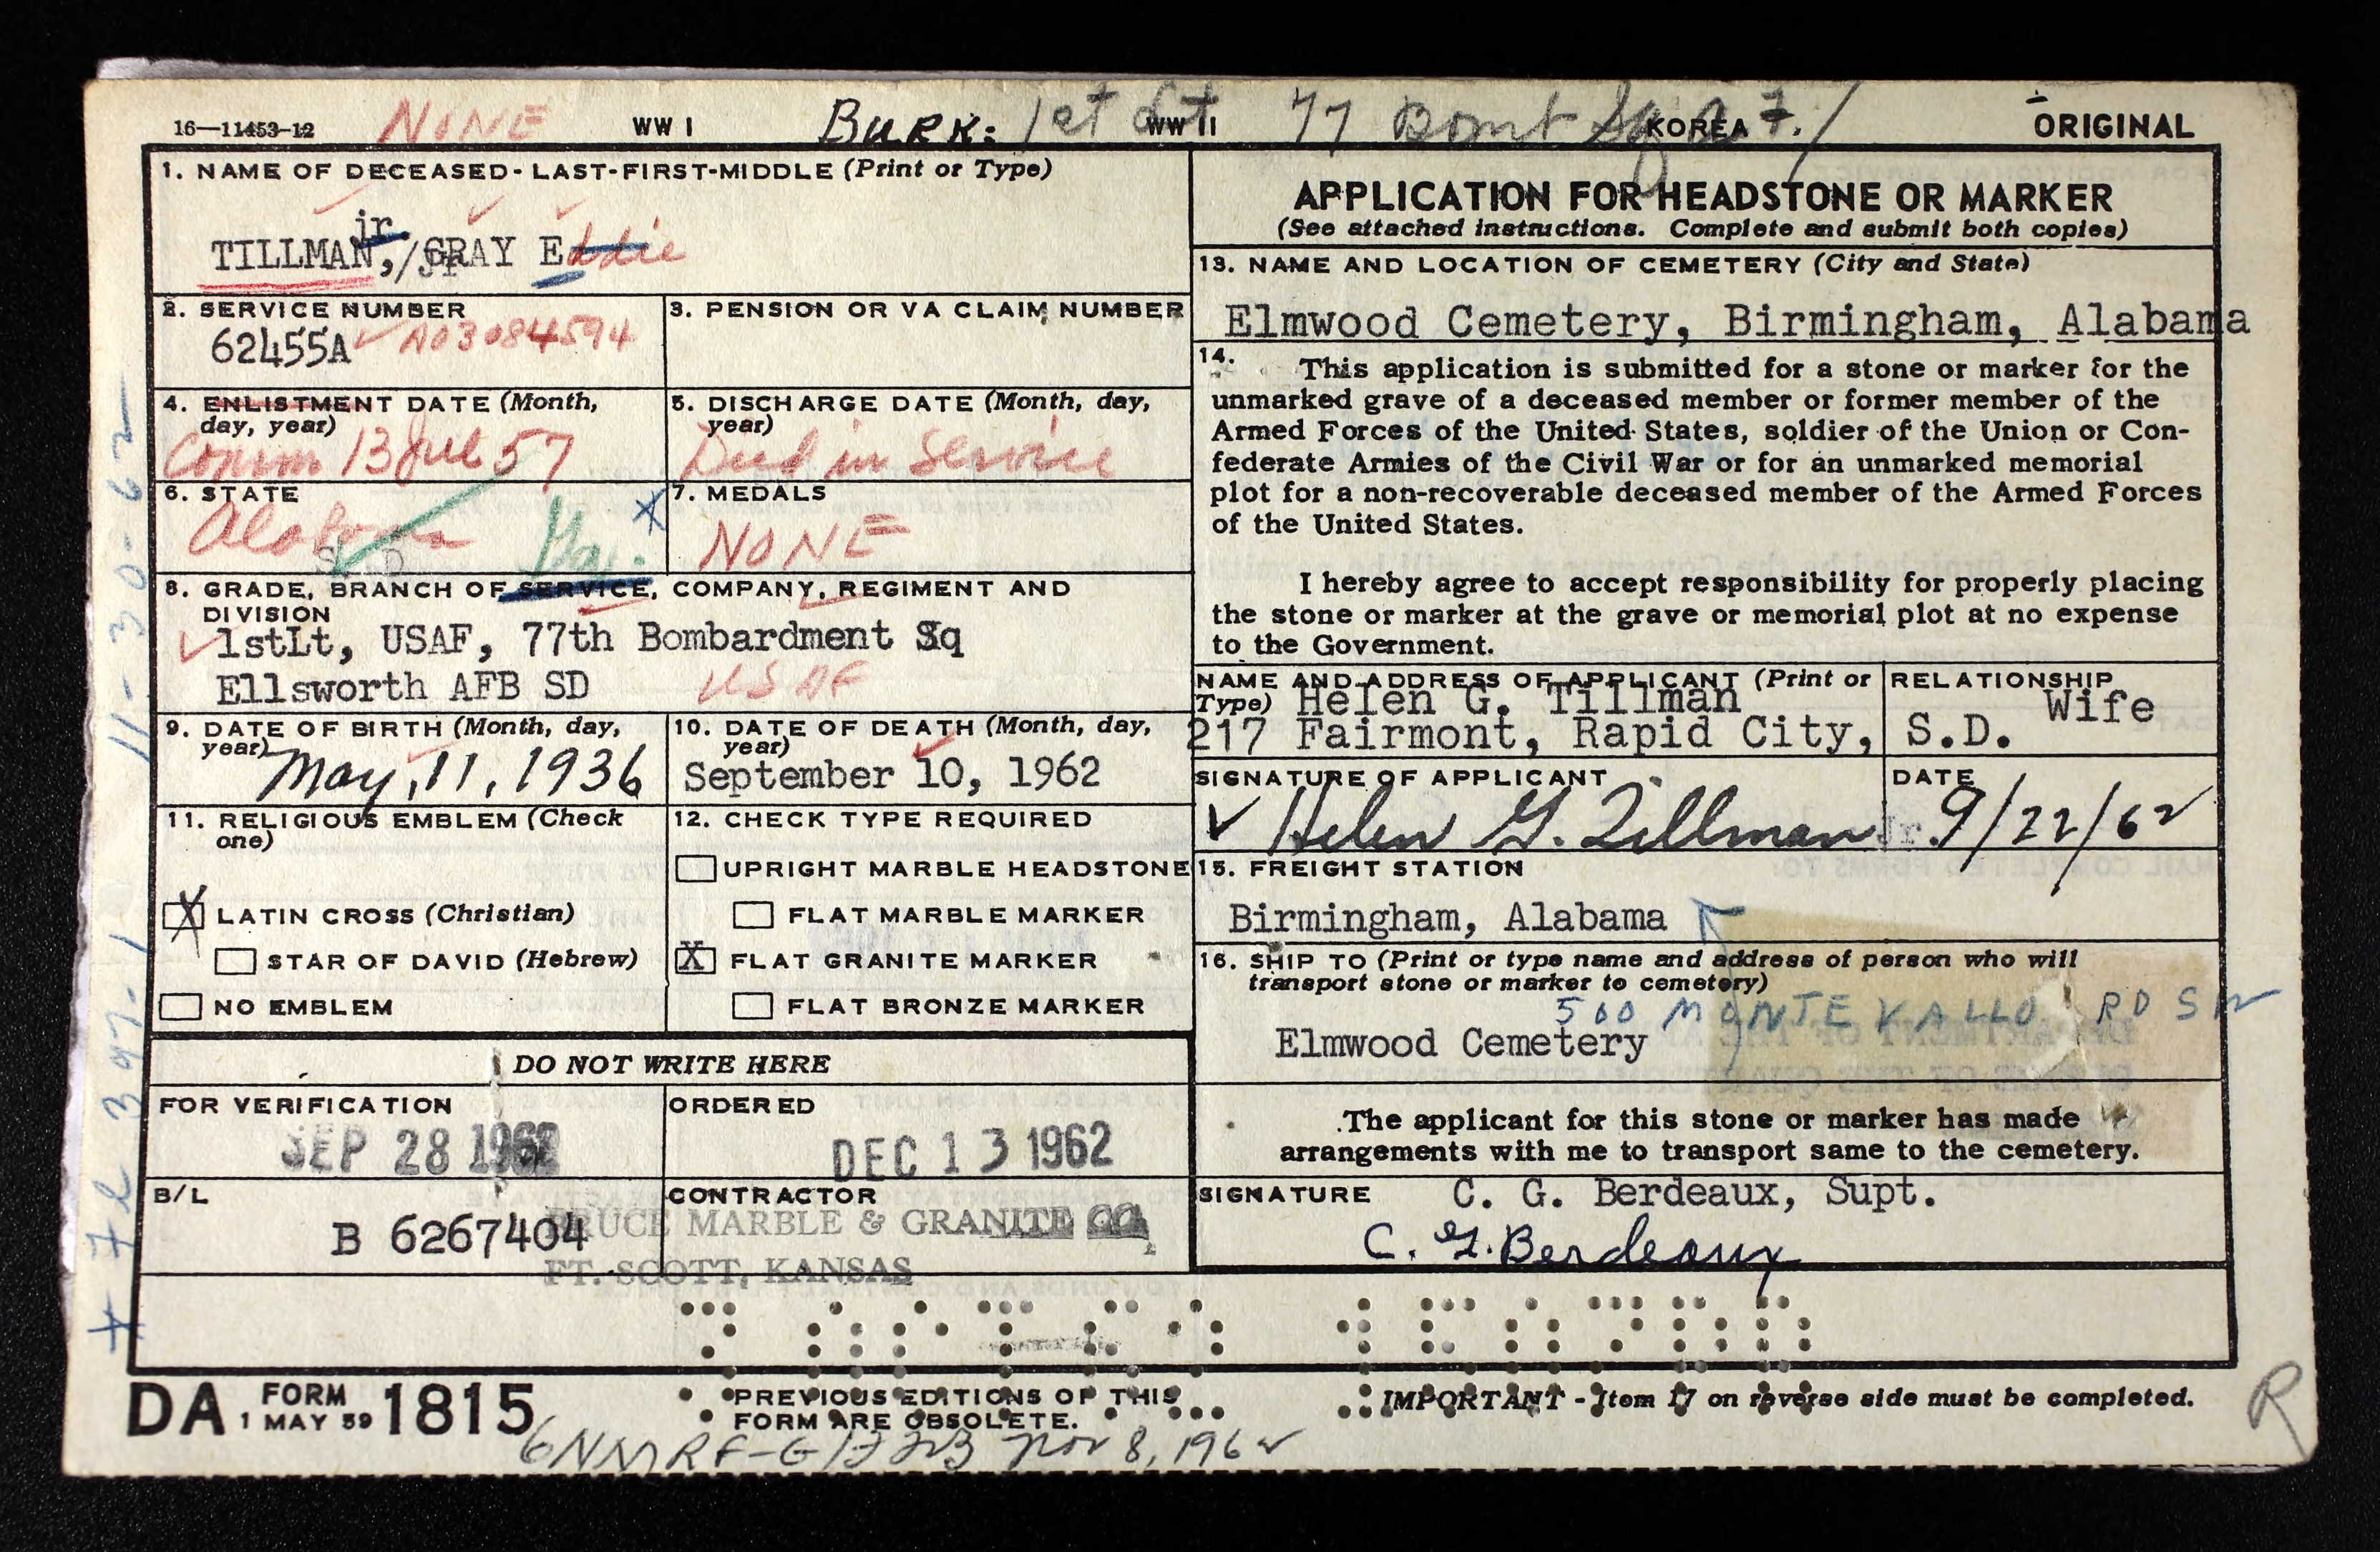 16—11453-12 NONE WW I BURK: 1st Lt WW II 77 Bomt Sq KOREA ORIGINAL
1. NAME OF DECEASED - LAST-FIRST-MIDDLE (Print or Type)
jr.
TILLMAN, / GRAY Eddie
2. SERVICE NUMBER
62455A A03084594
3. PENSION OR VA CLAIM NUMBER
4. ENLISTMENT DATE (Month,
day, year)
Comm 13 Jul 57
5. DISCHARGE DATE (Month, day,
year)
Died in Service
6. STATE
Alabama
S. D.
7. MEDALS
NONE
8. GRADE, BRANCH OF SERVICE, COMPANY, REGIMENT AND
DIVISION
1stLt, USAF, 77th Bombardment Sq
Ellsworth AFB SD USAF
9. DATE OF BIRTH (Month, day,
year)
May, 11, 1936
10. DATE OF DEATH (Month, day,
year)
September 10, 1962
11. RELIGIOUS EMBLEM (Check
one)
X LATIN CROSS (Christian)
STAR OF DAVID (Hebrew)
NO EMBLEM
12. CHECK TYPE REQUIRED
UPRIGHT MARBLE HEADSTONE
FLAT MARBLE MARKER
X FLAT GRANITE MARKER
FLAT BRONZE MARKER
DO NOT WRITE HERE
FOR VERIFICATION
SEP 28 1962
ORDERED
DEC 13 1962
B/L
B 6267404
CONTRACTOR
BRUCE MARBLE & GRANITE CO.
FT. SCOTT, KANSAS
APPLICATION FOR HEADSTONE OR MARKER
(See attached instructions. Complete and submit both copies)
13. NAME AND LOCATION OF CEMETERY (City and State)
Elmwood Cemetery, Birmingham, Alabama
14. This application is submitted for a stone or marker for the
unmarked grave of a deceased member or former member of the
Armed Forces of the United States, soldier of the Union or Con-
federate Armies of the Civil War or for an unmarked memorial
plot for a non-recoverable deceased member of the Armed Forces
of the United States.
I hereby agree to accept responsibility for properly placing
the stone or marker at the grave or memorial plot at no expense
to the Government.
NAME AND ADDRESS OF APPLICANT (Print or
Type) Helen G. Tillman
217 Fairmont, Rapid City, S.D.
RELATIONSHIP
Wife
SIGNATURE OF APPLICANT
Helen G. Tillman Jr.
DATE
9/22/62
15. FREIGHT STATION
Birmingham, Alabama
16. SHIP TO (Print or type name and address of person who will
transport stone or marker to cemetery)
500 MONTEVALLO RD SW
Elmwood Cemetery
The applicant for this stone or marker has made
arrangements with me to transport same to the cemetery.
SIGNATURE C. G. Berdeaux, Supt.
C. G. Berdeaux
DA FORM 1815
1 MAY 59
PREVIOUS EDITIONS OF THIS
FORM ARE OBSOLETE.
IMPORTANT - Item 17 on reverse side must be completed.
Nov 8, 1962
R
11-30-62